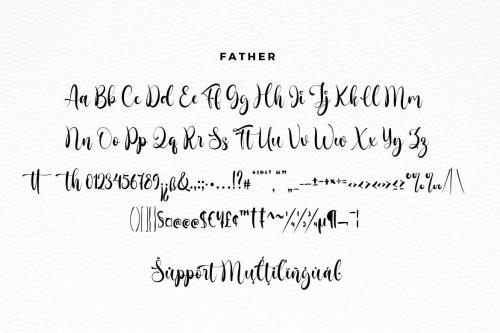 FATHER
Aa Bb Cc Dd Ee Ff Gg Hh Ii Jj Kk Ll Mm
Nn Oo Pp Qq Rr Ss Tt Uu Vv Ww Xx Yy Zz
tt Th 0123456789¡¿ß&.,:;·•…!?#
$€¥£¢™†‡^~¼½¾µ¶¬¦